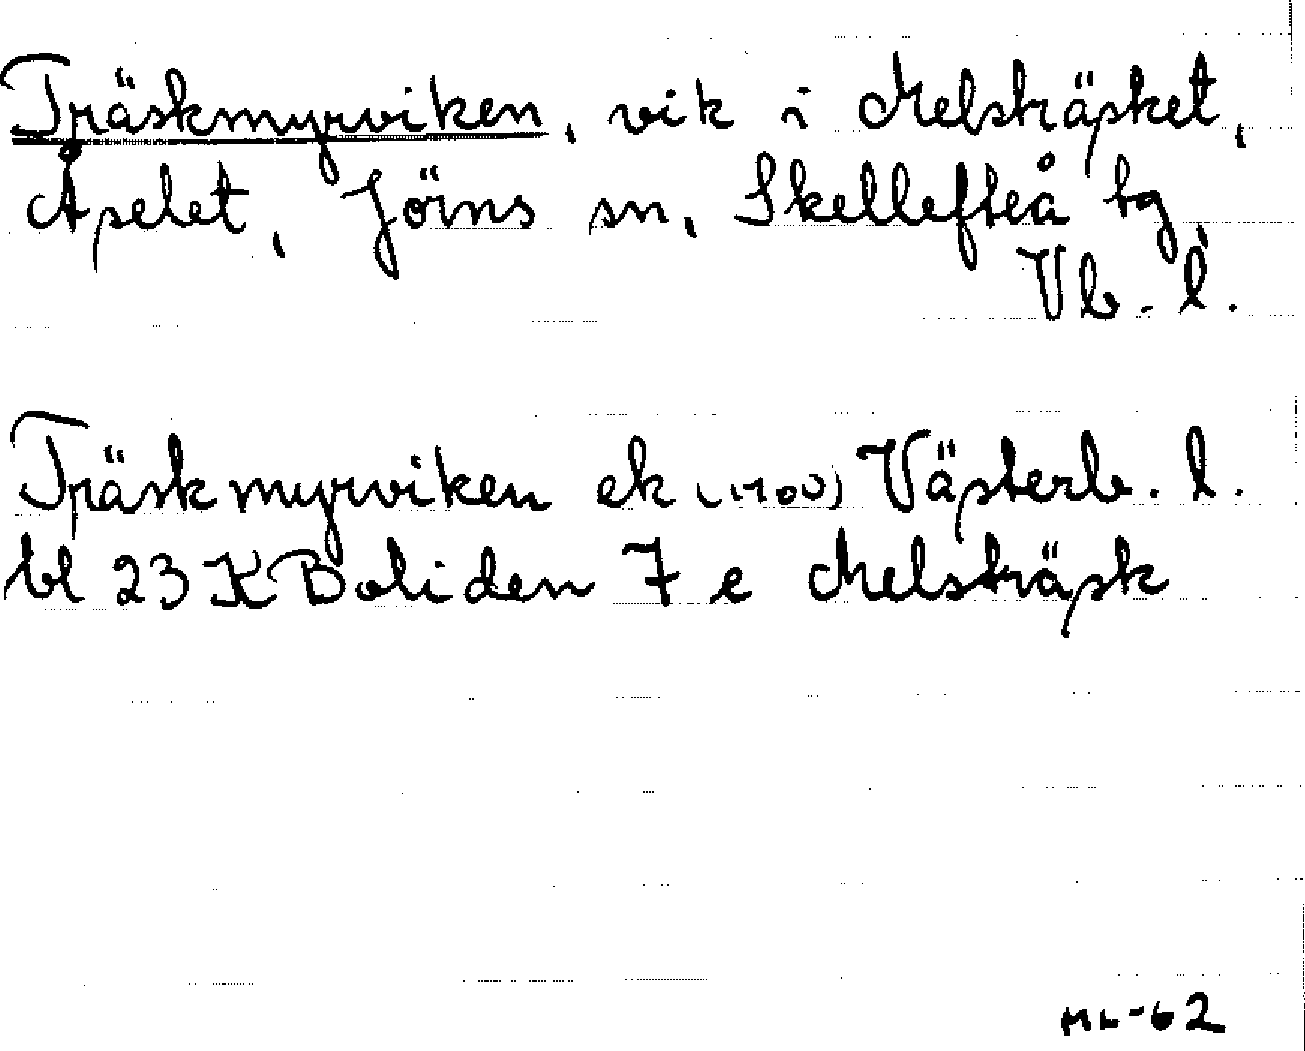 Träskmyrviken, vik i Melsträsket,
Åselet, Jörns sn, Skellefteå tg
Vb. l.
Träskmyrviken ek Västerb. l.
bl 23 K Boliden 7 e Melsträsk
ML-62